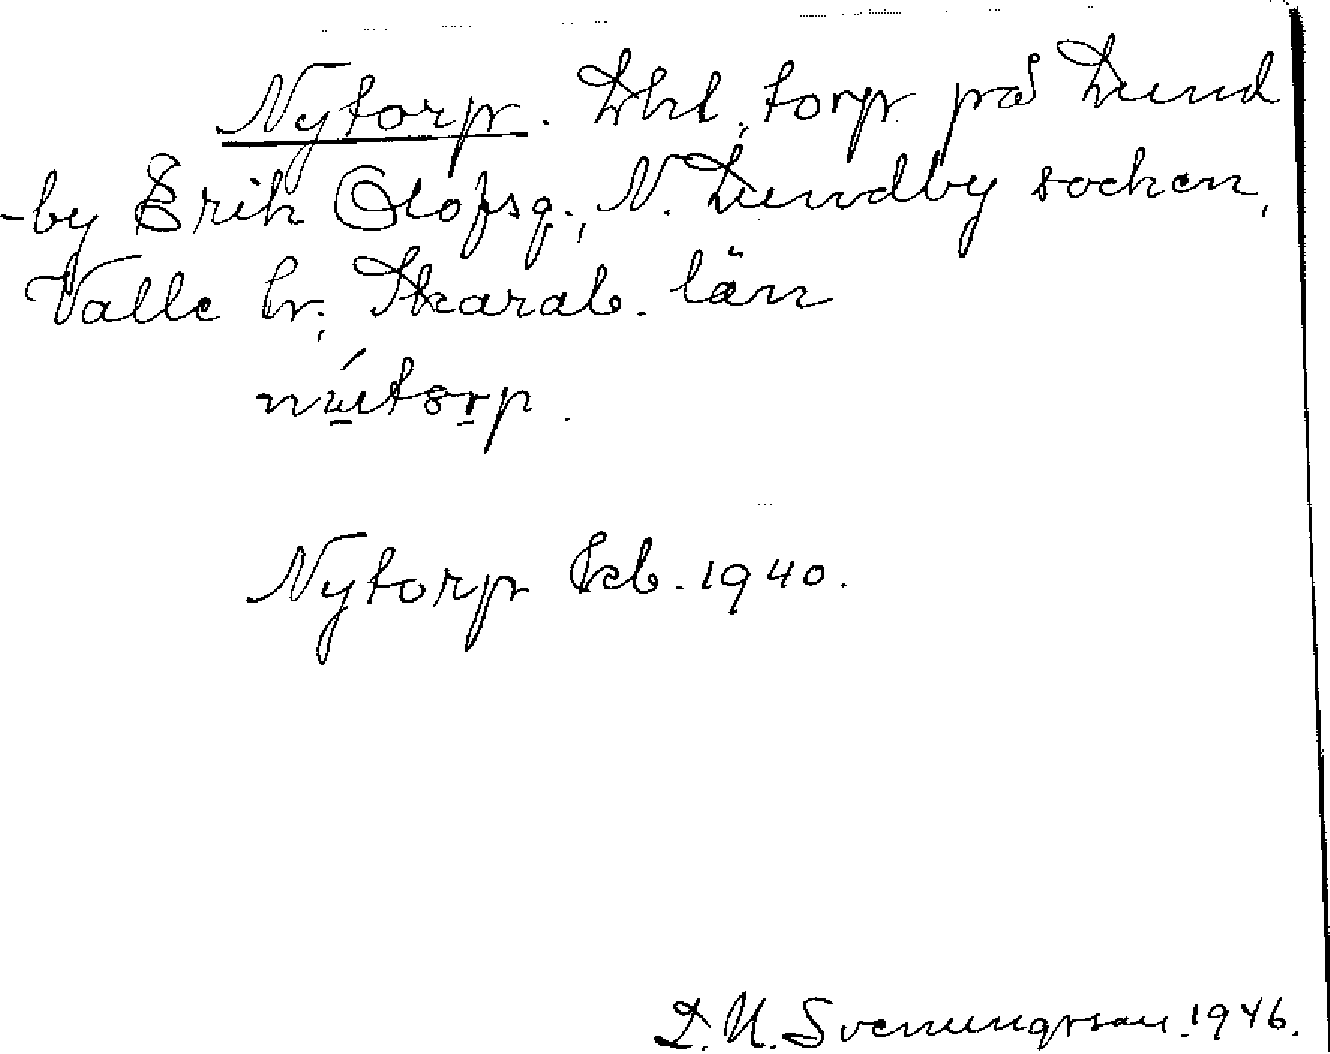 Nytorp. Lht, torp på Lund
-by Erik Olofsg., N. Lundby socken,
Valle hr, Skarab. län
Nytorp 1940.
L. M. Svenungsson 1946.